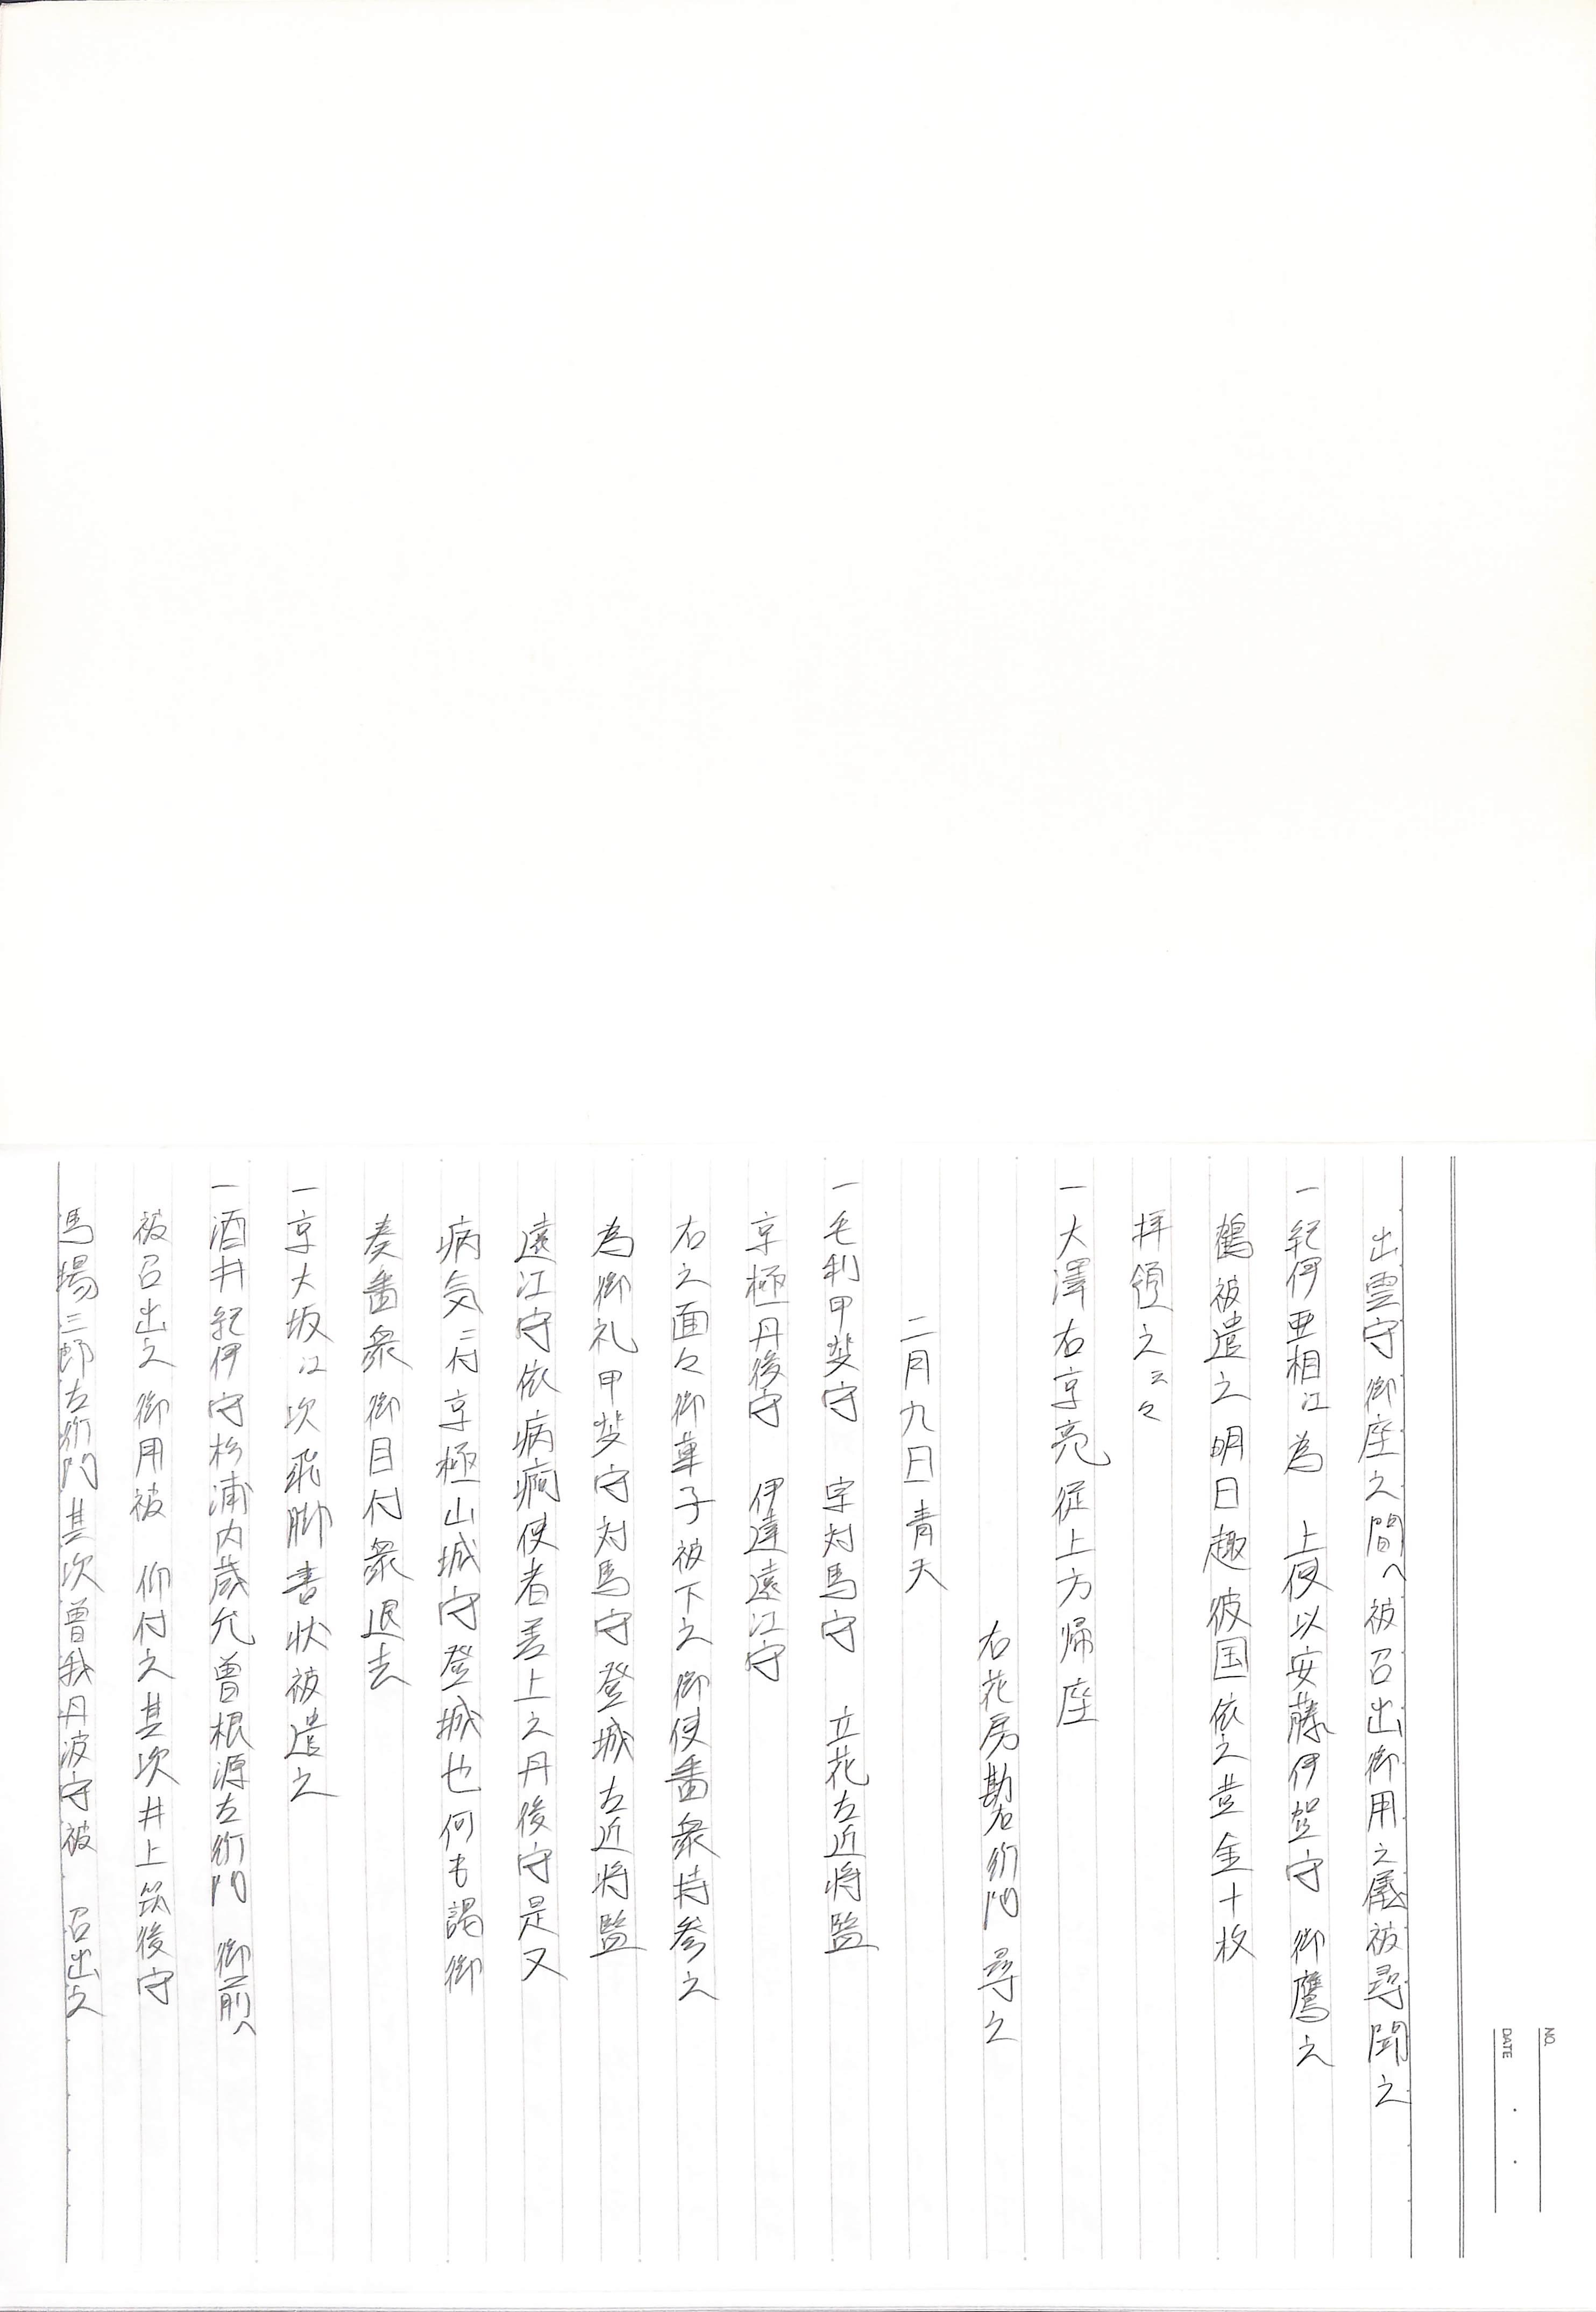 出雲守御座之間へ被召出御用之儀被尋聞之
一紀伊亜相江為　上使以安藤伊賀守　御鷹之
鶴被遣之明日趣彼国依之黄金十枚
拝領之云々
一大澤右京亮従上方帰座
右花房勘右衛門尋之
二月九日青天
一毛利甲斐守　宗対馬守　立花左近将監
京極丹後守　伊達遠江守
右之面々御菓子被下之御使番衆持参之
為御礼甲斐守対馬守登城左近将監
遠江守依病痾使者差上之丹後守是又
病気ニ付京極山城守登城也何も謁御
奏番衆御目付衆退去
一京大坂江次飛脚書状被遣之
一酒井紀伊守杉浦内蔵允曽根源左衛門　御前へ
被召出之御用被　仰付之其次井上筑後守
馬場三郎左衛門其次曽我丹波守被　召出之
NO.
DATE